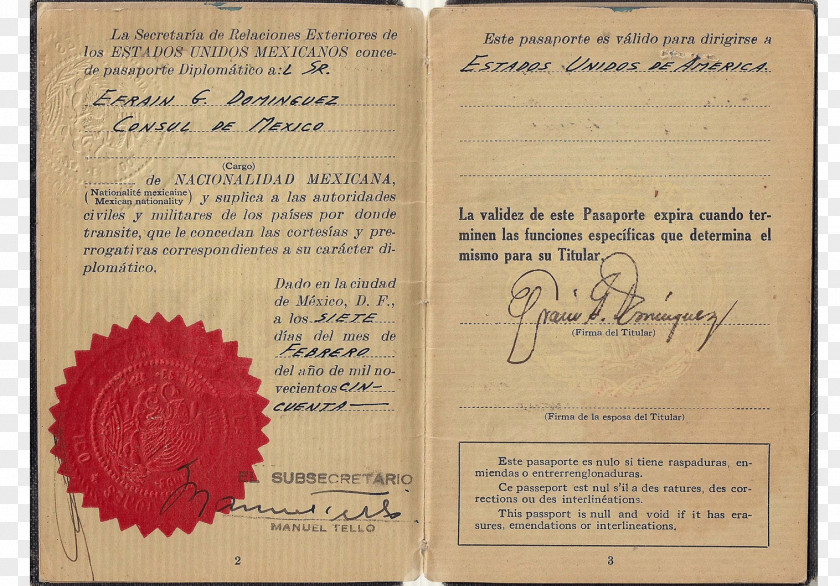 La Secretaría de Relaciones Exteriores de
los ESTADOS UNIDOS MEXICANOS conce-
de pasaporte Diplomático a:L SR.
EFRAIN G. DOMINGUEZ
CONSUL DE MEXICO
(Cargo)
de NACIONALIDAD MEXICANA,
(Nationalité mexicaine
Mexican nationality) y suplica a las autoridades
civiles y militares de los países por donde
transite, que le concedan las cortesías y pre-
rrogativas correspondientes a su carácter di-
plomático.
Dado en la ciudad
de México, D. F.,
a los SIETE
días del mes de
FEBRERO
del año de mil no-
vecientos CIN-
CUENTA
EL SUBSECRETARIO
Manuel Tello
MANUEL TELLO
2
Este pasaporte es válido para dirigirse a
ESTADOS UNIDOS DE AMERICA.
La validez de este Pasaporte expira cuando ter-
minen las funciones específicas que determina el
mismo para su Titular.
Efraín G. Domínguez
(Firma del Titular)
(Firma de la esposa del Titular)
Este pasaporte es nulo si tiene raspaduras, en-
miendas o entrerrenglonaduras.
Ce passeport est nul s'il a des ratures, des cor-
rections ou des interlinéations.
This passport is null and void if it has era-
sures, emendations or interlineations.
3